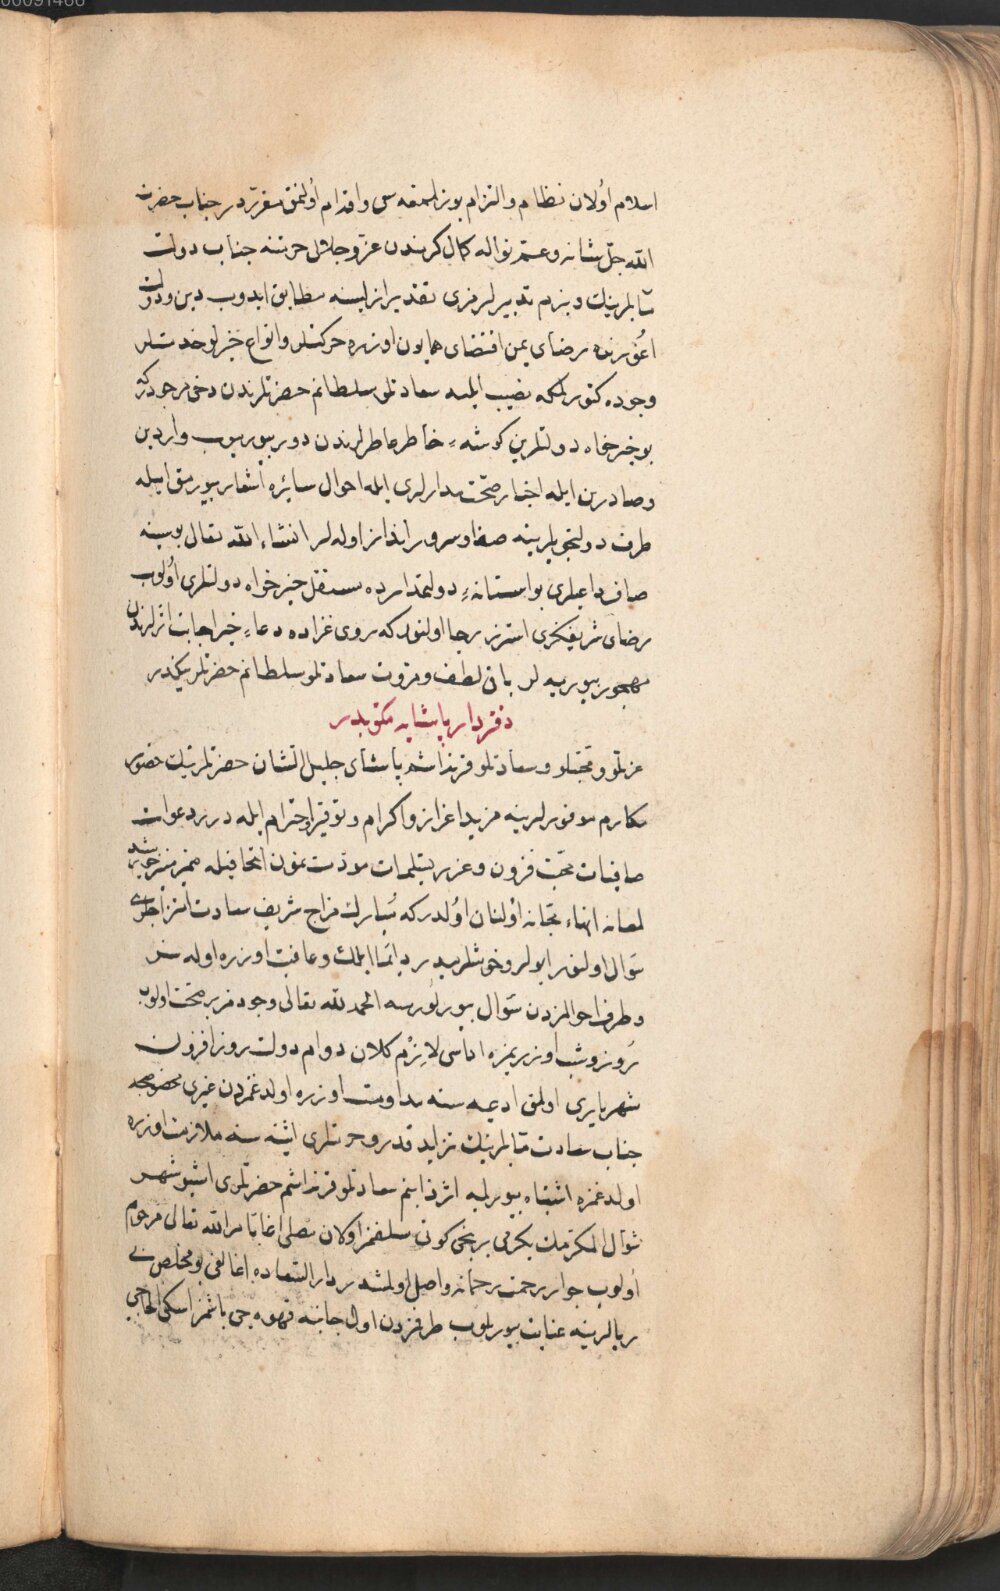 00091466
اسلام اولان نظام والتزام بوزلمقه سی واقدام اولنمق مقرردر جناب حضرت
الله جل شانه وعم نواله كمال كرمندن عز وجلال حرمتنه جناب دولت
مآبلرينك دبزم تدبيرلرينى تقدير ازليسنه مطابق ايدوب دين ودولت
اغورنده رضاى يمن اقتضاى همايون اوزره حركتلر وانواع خيرلو خدمتلر
وجوده كتورمكه نصيب ايليه سعادتلو سلطانم حضرتلرندن دخى مرجودركه
بو خيرخواه دولتلرين كوشهٔ خاطر عاطرلرندن دور بيورميوب واردين
وصادرين ايله اخبار صحت مدارلرى ايله احوال سائره اشعار بيورمق ايله
طرف دولتجويلرينه صفا وسرور انداز اوله لر انشاء الله تعالى بوسينه
صاف داعيلرى بو استانهٔ دولتمدارده مستقل خيرخواه دولتلرى اولوب
رضاى شريفكزى استرز رجا اولنوركه بروى غزاده دعاء خير اجابت اثرلرندن
مهجور بيورميه لر باقى لطف ومروت سعادتلو سلطانم حضرتلريكدر
دفتردار پاشايه مكتوبدر
عزتلو ومحبتلو وسعادتلو قرنداشم پاشاى جليل الشان حضرتلرينك حضور
مكارم موفورلرينه مزيد اعزاز واكرام وتوقير واحترام ايله درر دعوات
صافيات محبت فزون وغرر تسليمات مودت نمون اتحافيله ضمير منير خورشيد
لمعانه انهاء محبانه اولنان اولدركه مبارك مزاج شريف سعادت امتزاجلرى
سؤال اولنور ايولر وخوشلرميدر دائما ايلك وعافيت اوزره اوله سز
وطرف احوالمزدن سؤال بيورلورسه الحمد لله تعالى وجودمز بر صحت اولوب
روز وشب اوزريمزه اداسى لازم كلان دوام دولت روزافزون
شهريارى اولمق ادعيه سنه مداومت اوزره اولدغمزدن غيرى مخصوصا
جناب سعادت مآبلرينك تزايد قدر وحرمتلرى ايشنه سنه ملازمت اوزره
اولدغمزه اشتباه بيورلميه اثرندا بنم سعادتلو قرنداشم حضرتلرى اشبو شهر
شوال المكرمك يكرمى برنجى كونى سلفمز اولان مصلى اغا بامر الله تعالى مرحوم
اولوب جوار رحمت رحمانه واصل اولمشدر دار السعاده اغالغى بو مخلص
ريالرينه عنايت بيوريلوب طرفمزدن اول جانبه قهوه جى باشمز اسكى الحاجى